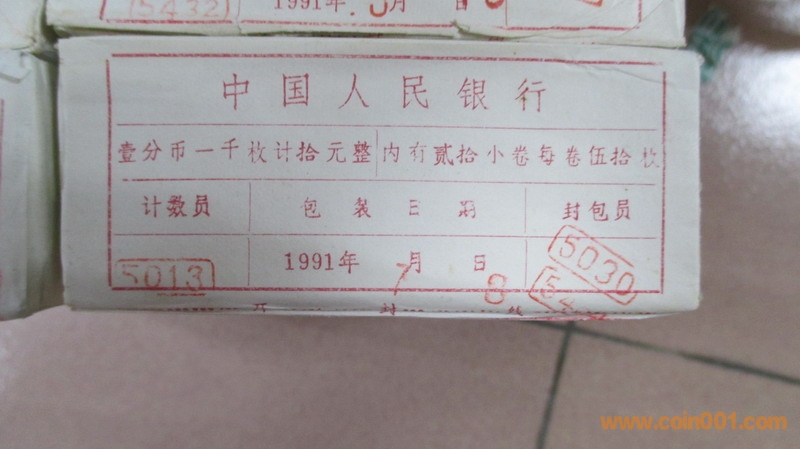 (5432) 1991年.5月 日
中国人民银行
壹分币一千枚计拾元整 内有贰拾小卷每卷伍拾枚
计数员 包装日期 封包员
5013 1991年7月8日 5030
www.coin001.com